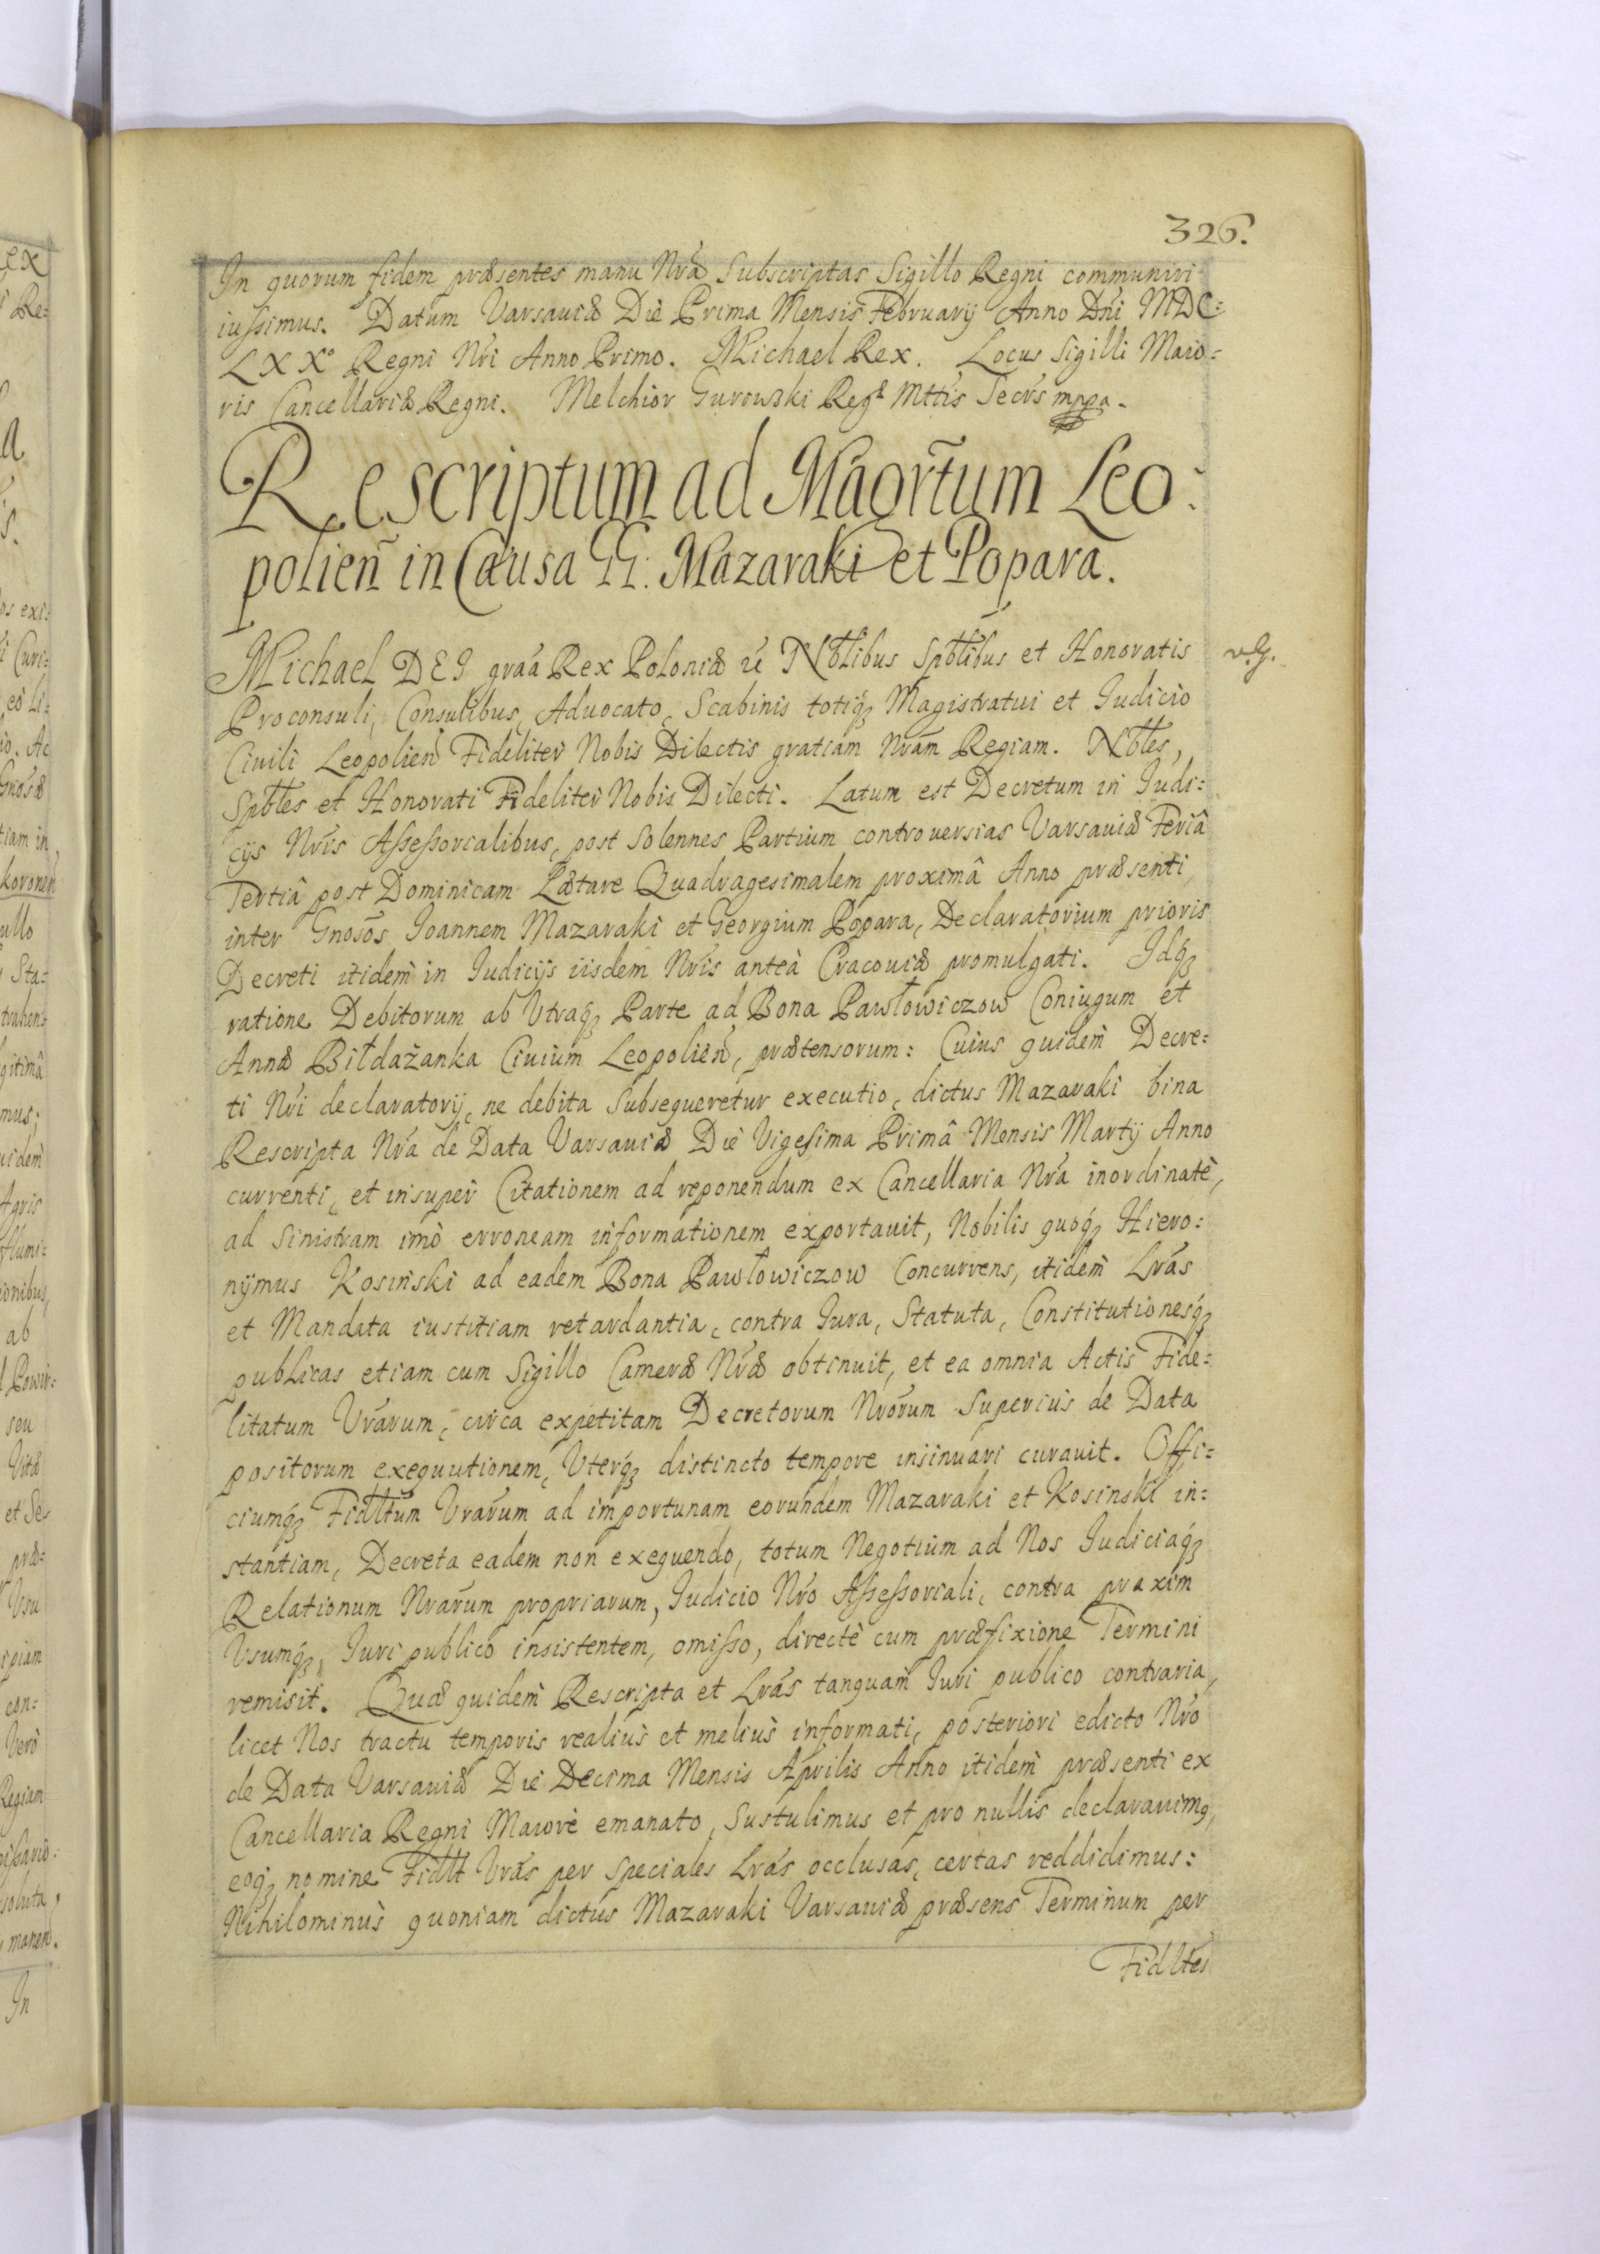 326.
In quorum fidem præsentes manu Nrã Subscriptas Sigillo Regni communiri
iussimus. Datum Varsaviæ Die Prima Mensis Februarij Anno Dni MDC:
LXXº Regni Nri Anno Primo. Michael Rex. Locus Sigilli Maio:
ris Cancellariæ Regni. Melchior Gurowski Regæ Mttis Secrs mppa.
Rescriptum ad Magrtum Leo:
polien in Causa GG: Mazaraki et Popara.
Michael DEI graã Rex Poloniæ ũ Nbtlibus Spbtlibus et Honoratis
Proconsuli, Consulibus, Advocato, Scabinis totiq₃ Magistratui et Iudicio
Civili Leopolien Fideliter Nobis Dilectis gratiam Nram Regiam. Nbtles,
Spbtles et Honorati Fideliter Nobis Dilecti. Latum est Decretum in Iudi:
cijs Nris Assessorialibus, post Solennes Partium controversias Varsaviæ Feriâ
Tertiâ post Dominicam Lætare Quadragesimalem proximâ Anno præsenti,
inter Gnosos Ioannem Mazaraki et Georgium Popara, Declaratorium prioris
Decreti itidem in Iudicijs iisdem Nris anteà Cracoviæ promulgati. Idq₃
ratione Debitorum ab Utraq₃ Parte ad Bona Pawłowiczow Coniugum et
Annæ Biłdażanka Civium Leopolien, prætensorum: Cuius quidem Decre:
ti Nri declaratorij, ne debita Subsequeretur executio, dictus Mazaraki bina
Rescripta Nra de Data Varsaviæ Die Vigesima Primâ Mensis Martij Anno
currenti, et insuper Citationem ad reponendum ex Cancellaria Nra inordinatè,
ad Sinistram imò erroneam informationem exportavit, Nobilis quoq₃ Hiero:
nymus Kosiński ad eadem Bona Pawłowiczow Concurrens, itidem Lras
et Mandata iustitiam retardantia, contra Iura, Statuta, Constitutionesq₃
publicas etiam cum Sigillo Cameræ Nræ obtinuit, et ea omnia Actis Fide:
litatum Vrarum, circa expetitam Decretorum Nrorum Superius de Data
positorum exequutionem, Uterq₃ distincto tempore insinuari curavit. Offi:
ciumq₃ Fidltum Vrarum ad importunam eorundem Mazaraki et Kosinski in:
stantiam, Decreta eadem non exequendo, totum Negotium ad Nos Iudiciaq₃
Relationum Nrarum propriarum, Iudicio Nro Assessoriali, contra praxim
Usumq₃, Iuri publico insistentem, omisso, directè cum præfixione Termini
remisit. Quæ quidem Rescripta et Lras tanquam Iuri publico contraria,
licet Nos tractu temporis realiùs et meliùs informati, posteriori edicto Nro
de Data Varsaviæ Die Decima Mensis Aprilis Anno itidem præsenti ex
Cancellaria Regni Maiore emanato, Sustulimus et pro nullis declaravimq,
eoq₃ nomine Fidlt Vras per speciales Lras occlusas, certas reddidimus:
Nihilominùs quoniam dictus Mazaraki Varsaviæ præsens Terminum per
Fidltes